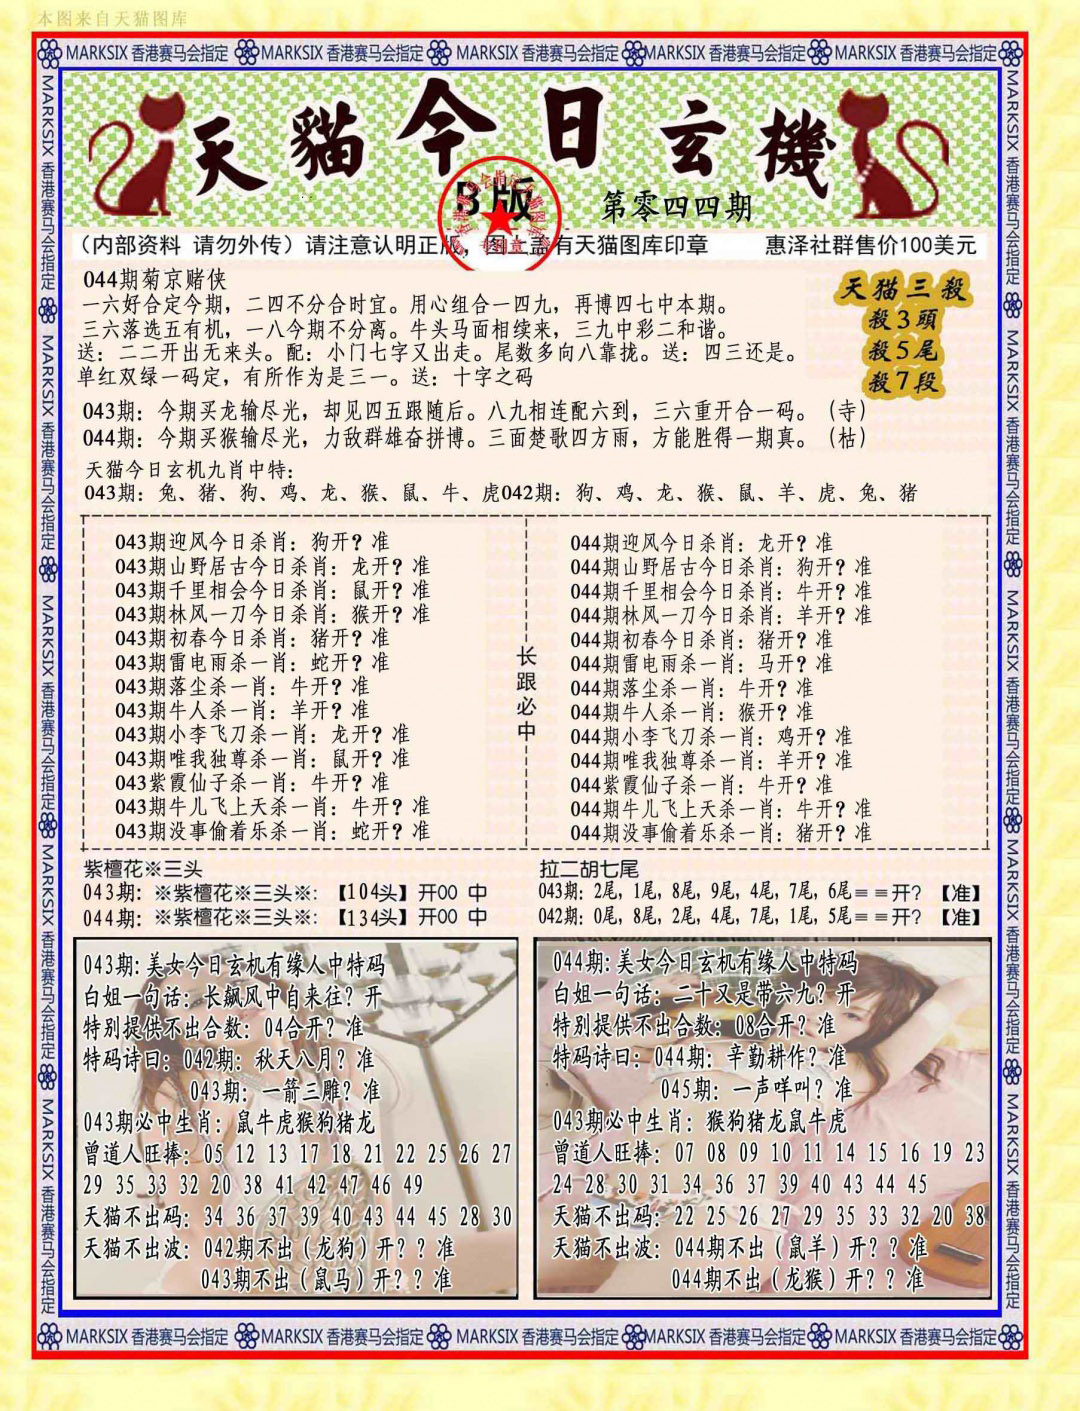 本图来自天猫图库
MARKSIX 香港赛马会指定 MARKSIX 香港赛马会指定 MARKSIX 香港赛马会指定 MARKSIX 香港赛马会指定 MARKSIX 香港赛马会指定
天貓今日玄機
B版
第零四四期
（内部资料 请勿外传）请注意认明正版，图上盖有天猫图库印章
惠泽社群售价100美元
044期菊京赌侠
一六好合定今期，二四不分合时宜。用心组合一四九，再博四七中本期。
三六落选五有机，一八今期不分离。牛头马面相续来，三九中彩二和谐。
送：二二开出无来头。配：小门七字又出走。尾数多向八靠拢。送：四三还是。
单红双绿一码定，有所作为是三一。送：十字之码
天猫三殺
殺3頭
殺5尾
殺7段
043期：今期买龙输尽光，却见四五跟随后。八九相连配六到，三六重开合一码。（寺）
044期：今期买猴输尽光，力敌群雄奋拼博。三面楚歌四方雨，方能胜得一期真。（枯）
天猫今日玄机九肖中特：
043期：兔、猪、狗、鸡、龙、猴、鼠、牛、虎042期：狗、鸡、龙、猴、鼠、羊、虎、兔、猪
043期迎风今日杀肖：狗开？准
043期山野居古今日杀肖：龙开？准
043期千里相会今日杀肖：鼠开？准
043期林风一刀今日杀肖：猴开？准
043期初春今日杀肖：猪开？准
043期雷电雨杀一肖：蛇开？准
043期落尘杀一肖：牛开？准
043期牛人杀一肖：羊开？准
043期小李飞刀杀一肖：龙开？准
043期唯我独尊杀一肖：鼠开？准
043紫霞仙子杀一肖：牛开？准
043期牛儿飞上天杀一肖：牛开？准
043期没事偷着乐杀一肖：蛇开？准
长跟必中
044期迎风今日杀肖：龙开？准
044期山野居古今日杀肖：狗开？准
044期千里相会今日杀肖：牛开？准
044期林风一刀今日杀肖：羊开？准
044期初春今日杀肖：猪开？准
044期雷电雨杀一肖：马开？准
044期落尘杀一肖：牛开？准
044期牛人杀一肖：猴开？准
044期小李飞刀杀一肖：鸡开？准
044期唯我独尊杀一肖：羊开？准
044紫霞仙子杀一肖：牛开？准
044期牛儿飞上天杀一肖：牛开？准
044期没事偷着乐杀一肖：猪开？准
紫檀花※三头
043期：※紫檀花※三头※：【104头】开00 中
044期：※紫檀花※三头※：【134头】开00 中
拉二胡七尾
043期：2尾，1尾，8尾，9尾，4尾，7尾，6尾＝＝开？【准】
042期：0尾，8尾，2尾，4尾，7尾，1尾，5尾＝＝开？【准】
043期：美女今日玄机有缘人中特码
白姐一句话：长飙风中自来往？开
特别提供不出合数：04合开？准
特码诗曰：042期：秋天八月？准
043期：一箭三雕？准
043期必中生肖：鼠牛虎猴狗猪龙
曾道人旺捧：05 12 13 17 18 21 22 25 26 27
29 35 33 32 20 38 41 42 47 46 49
天猫不出码：34 36 37 39 40 43 44 45 28 30
天猫不出波：042期不出（龙狗）开？？准
043期不出（鼠马）开？？准
044期：美女今日玄机有缘人中特码
白姐一句话：二十又是带六九？开
特别提供不出合数：08合开？准
特码诗曰：044期：辛勤耕作？准
045期：一声咩叫？准
043期必中生肖：猴狗猪龙鼠牛虎
曾道人旺捧：07 08 09 10 11 14 15 16 19 23
24 28 30 31 34 36 37 39 40 43 44 45
天猫不出码：22 25 26 27 29 35 33 32 20 38
天猫不出波：044期不出（鼠羊）开？？准
044期不出（龙猴）开？？准
MARKSIX 香港赛马会指定 MARKSIX 香港赛马会指定 MARKSIX 香港赛马会指定 MARKSIX 香港赛马会指定 MARKSIX 香港赛马会指定